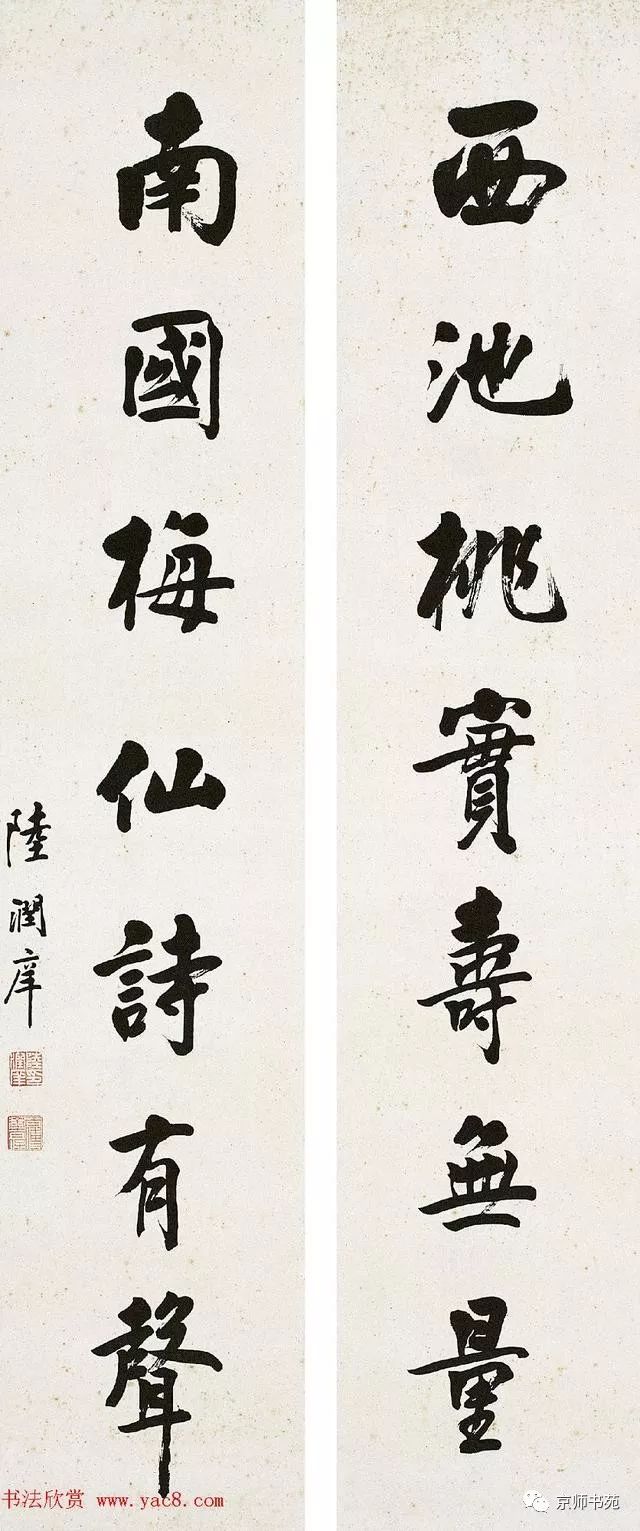 西池桃實壽無量
南國梅仙詩有聲
陸潤庠
书法欣赏 www.yac8.com
京师书苑